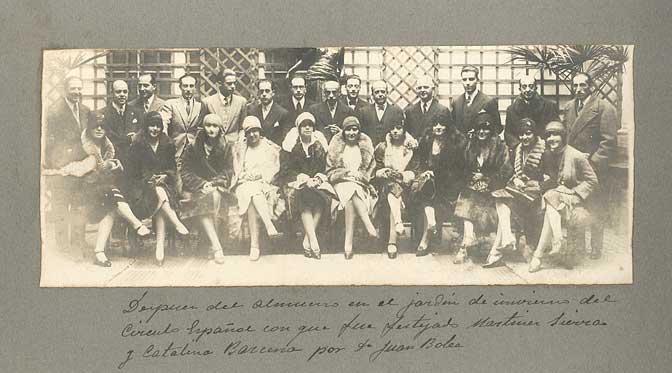 Despues del almuerzo en el jardin de invierno del
Circulo Español con que fue festejado Martinez Sierra
y Catalina Barcena por Dn Juan Bolea